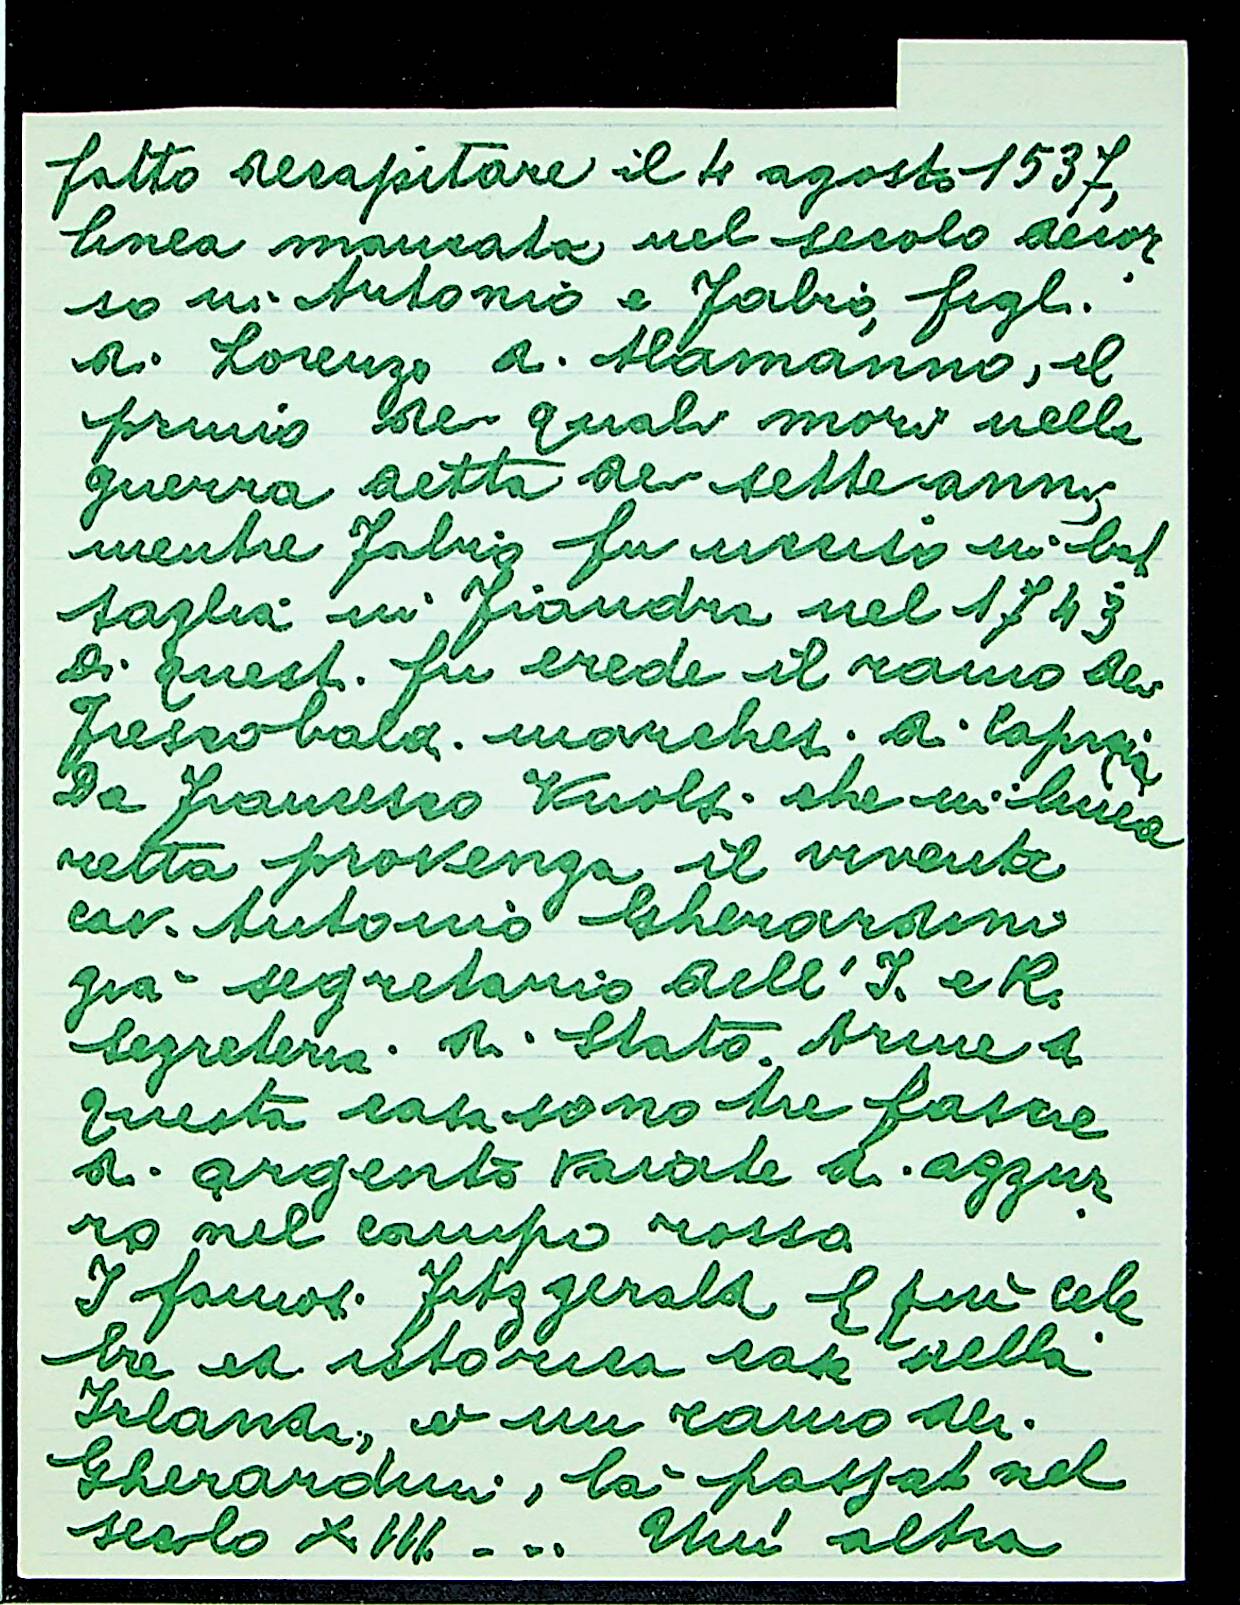 fatto decapitare il 4 agosto 1537,
linea mancata nel secolo decor
so in Antonio e Fabio, figli
di Lorenzo di Alamanno, il
primo dei quali morì nella
guerra detta dei sette anni,
mentre Fabio fu ucciso in bat
taglia in Fiandra nel 1743
Di questi fu erede il ramo dei
Frescobaldi marchesi di Capraia
Da Francesco vuolsi che in linea
retta provenga il vivente
cav. Antonio Gherardini
già segretario dell' I. e R.
Segreteria di Stato. Arme di
questa casa sono tre fascie
di argento vaiate di azzur
ro nel campo rosso
I famosi Fitzgerald la più cele
bre ed istorica casa della
Irlanda, è un ramo dei
Gherardini, là passati nel
secolo XIII - .. Un' altra